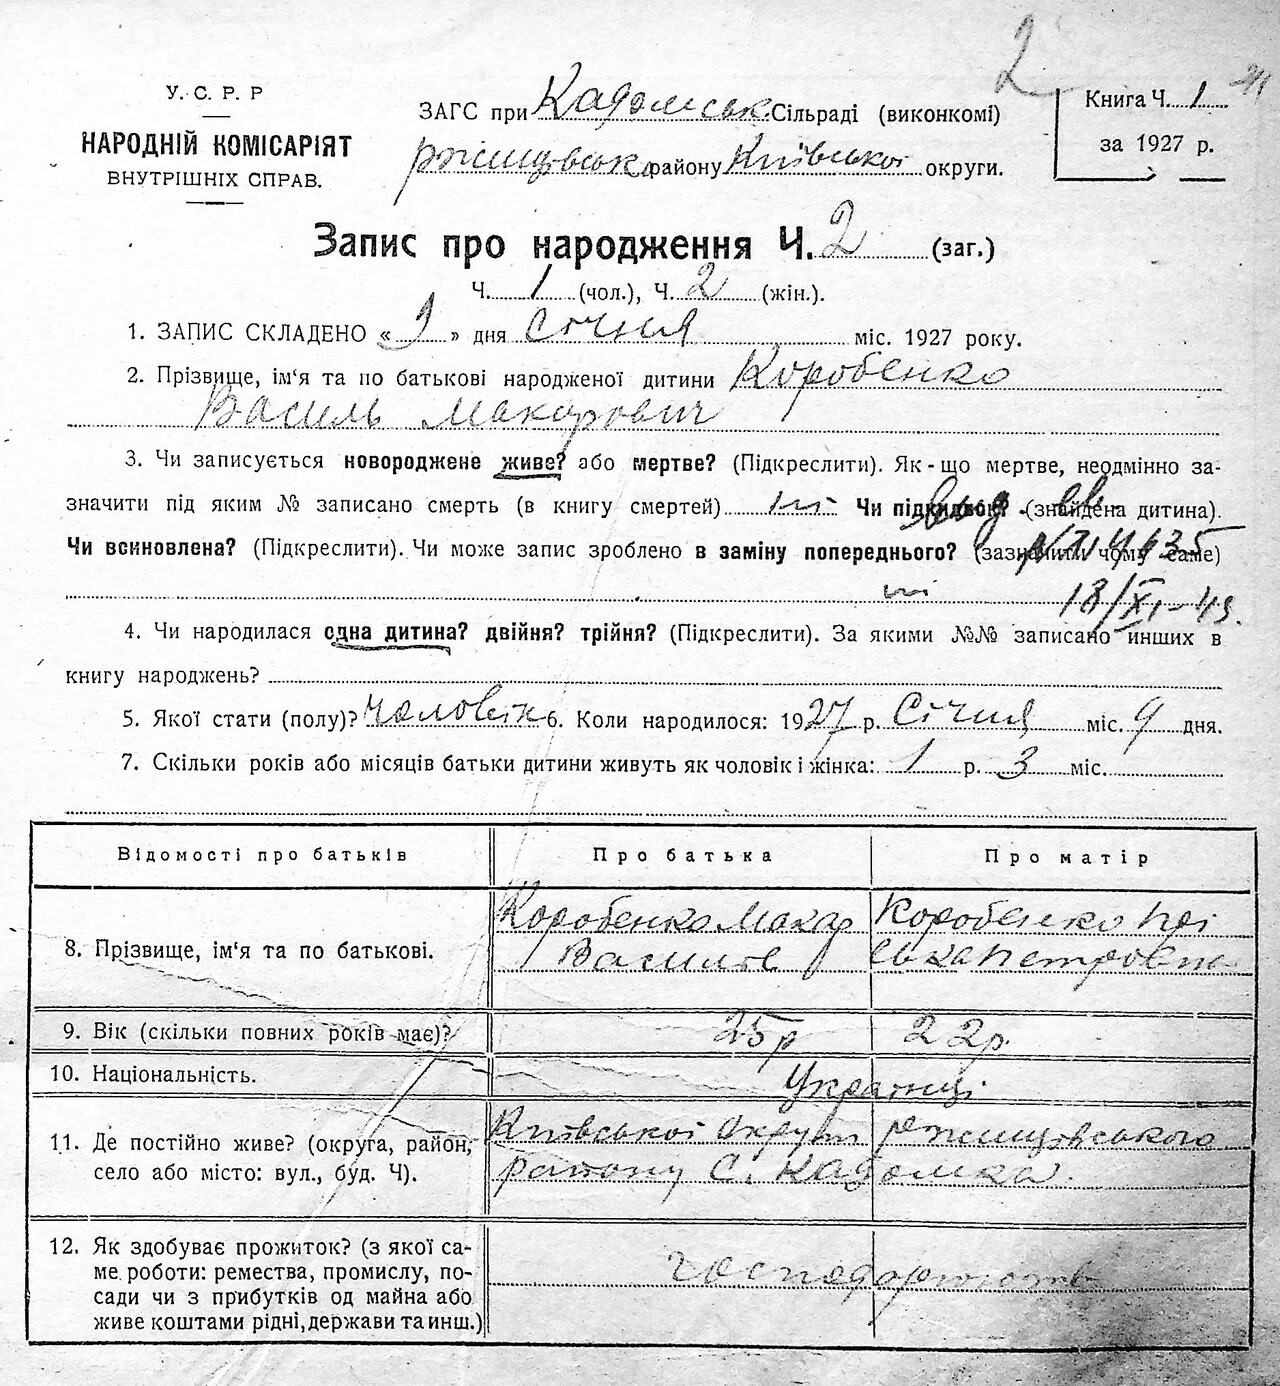 2
24
У. С. Р. Р
НАРОДНІЙ КОМІСАРІЯТ
ВНУТРІШНІХ СПРАВ.
ЗАГС при Кадомськ. Сільраді (виконкомі)
ржищівськ. району Київської округи.
Книга Ч. 1
за 1927 р.
Запис про народження Ч. 2 (заг.)
Ч. 1 (чол.), Ч. 2 (жін.).
1. ЗАПИС СКЛАДЕНО « 9 » дня Січня міс. 1927 року.
2. Прізвище, ім‘я та по батькові народженої дитини Коробенко
Василь Макарович
3. Чи записується новороджене живе? або мертве? (Підкреслити). Як-що мертве, неодмінно за-
значити під яким № записано смерть (в книгу смертей) ні Чи підкидьок? (знайдена дитина).
Чи всиновлена? (Підкреслити). Чи може запис зроблено в заміну попереднього? (зазначити чому саме)
ні
18/XI-49.
4. Чи народилася одна дитина? двійня? трійня? (Підкреслити). За якими №№ записано инших в
книгу народжень?
5. Якої стати (полу)? Чоловік 6. Коли народилося: 1927 р. Січня міс. 9 дня.
7. Скільки років або місяців батьки дитини живуть як чоловік і жінка: 1 р. 3 міс.
Відомості про батьків Про батька Про матір
8. Прізвище, ім‘я та по батькові. Коробенко Макар Васильов Коробенко Петровна
9. Вік (скільки повних років має)? 25р 22р.
10. Національність. Українці
11. Де постійно живе? (округа, район, Київської округи ржищівського
село або місто: вул., буд. Ч). району С. Кадомка.
12. Як здобуває прожиток? (з якої са-
ме роботи: ремества, промислу, по-
сади чи з прибутків од майна або
живе коштами рідні, держави та инш.)